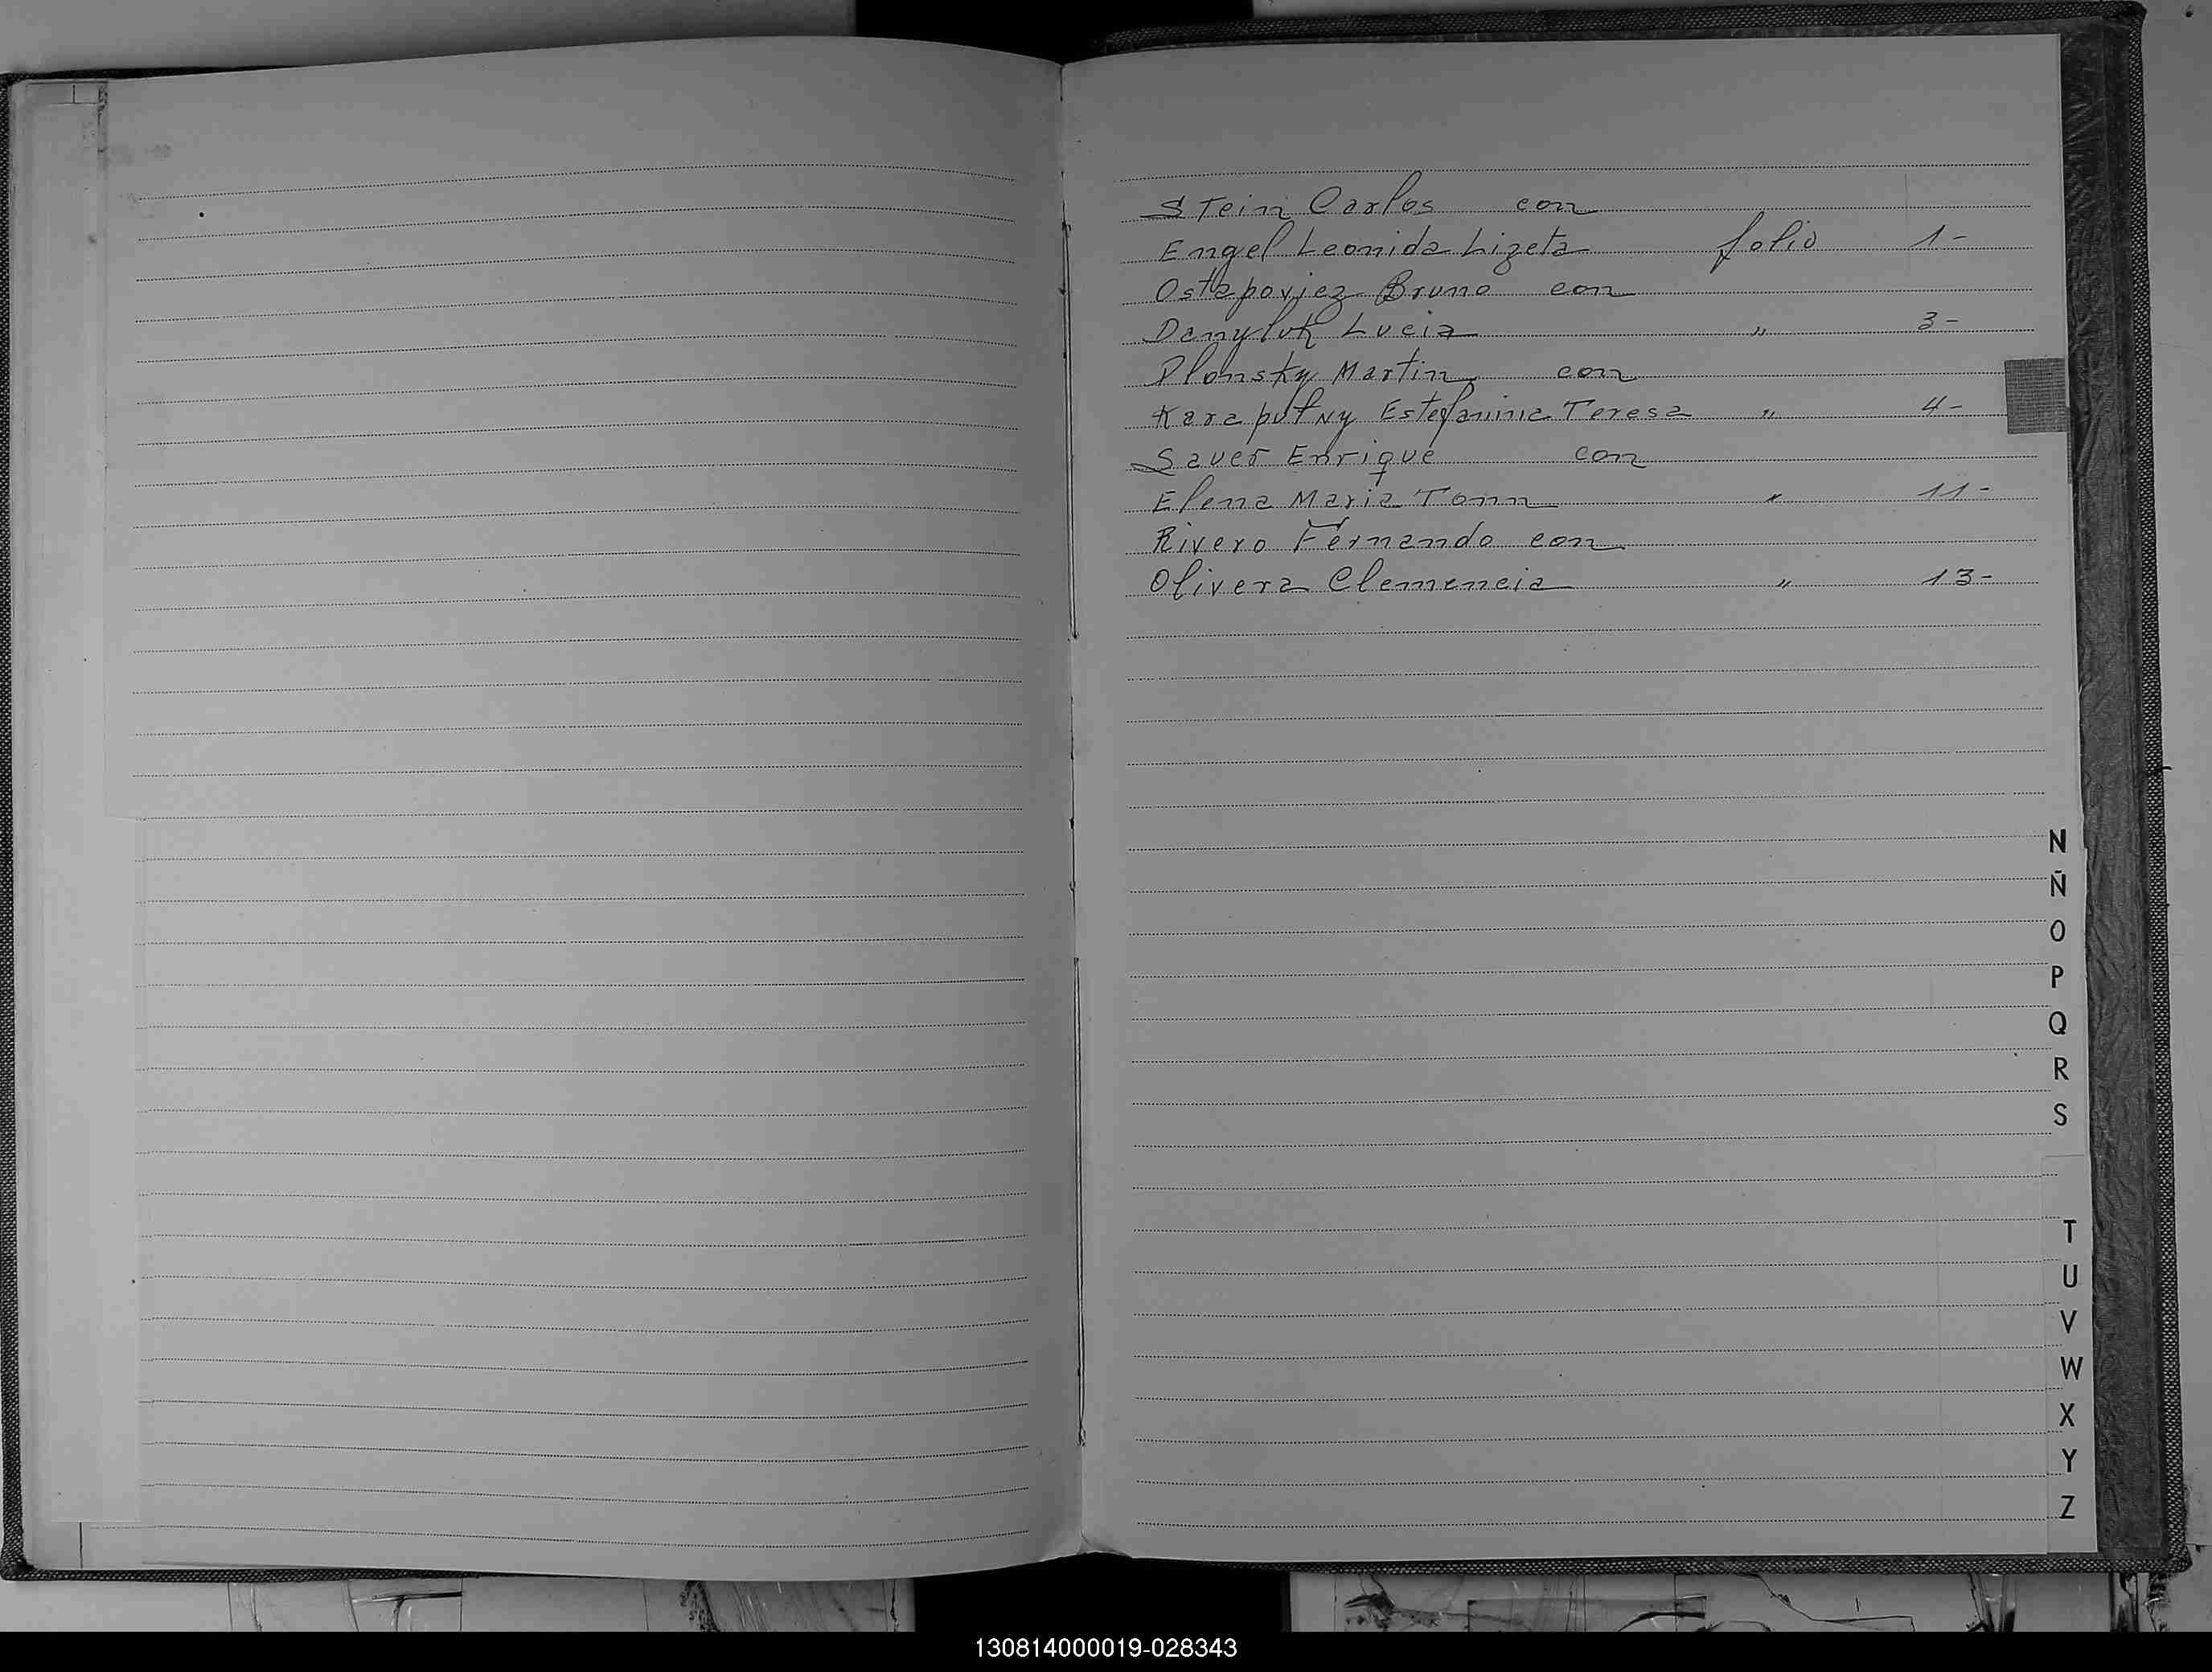 Stein Carlos con
Engel Leonida Lizeta folio 1-
Ostapoviez Bruno con
Danyluk Lucia " 3-
Plonsky Martin con
Karaputny Estefanina Teresa " 4-
Sauer Enrique con
Elena Maria Tonn " 11-
Rivero Fernando con
Olivera Clemencia " 13-
N
Ñ
O
P
Q
R
S
T
U
V
W
X
Y
Z
130814000019-028343